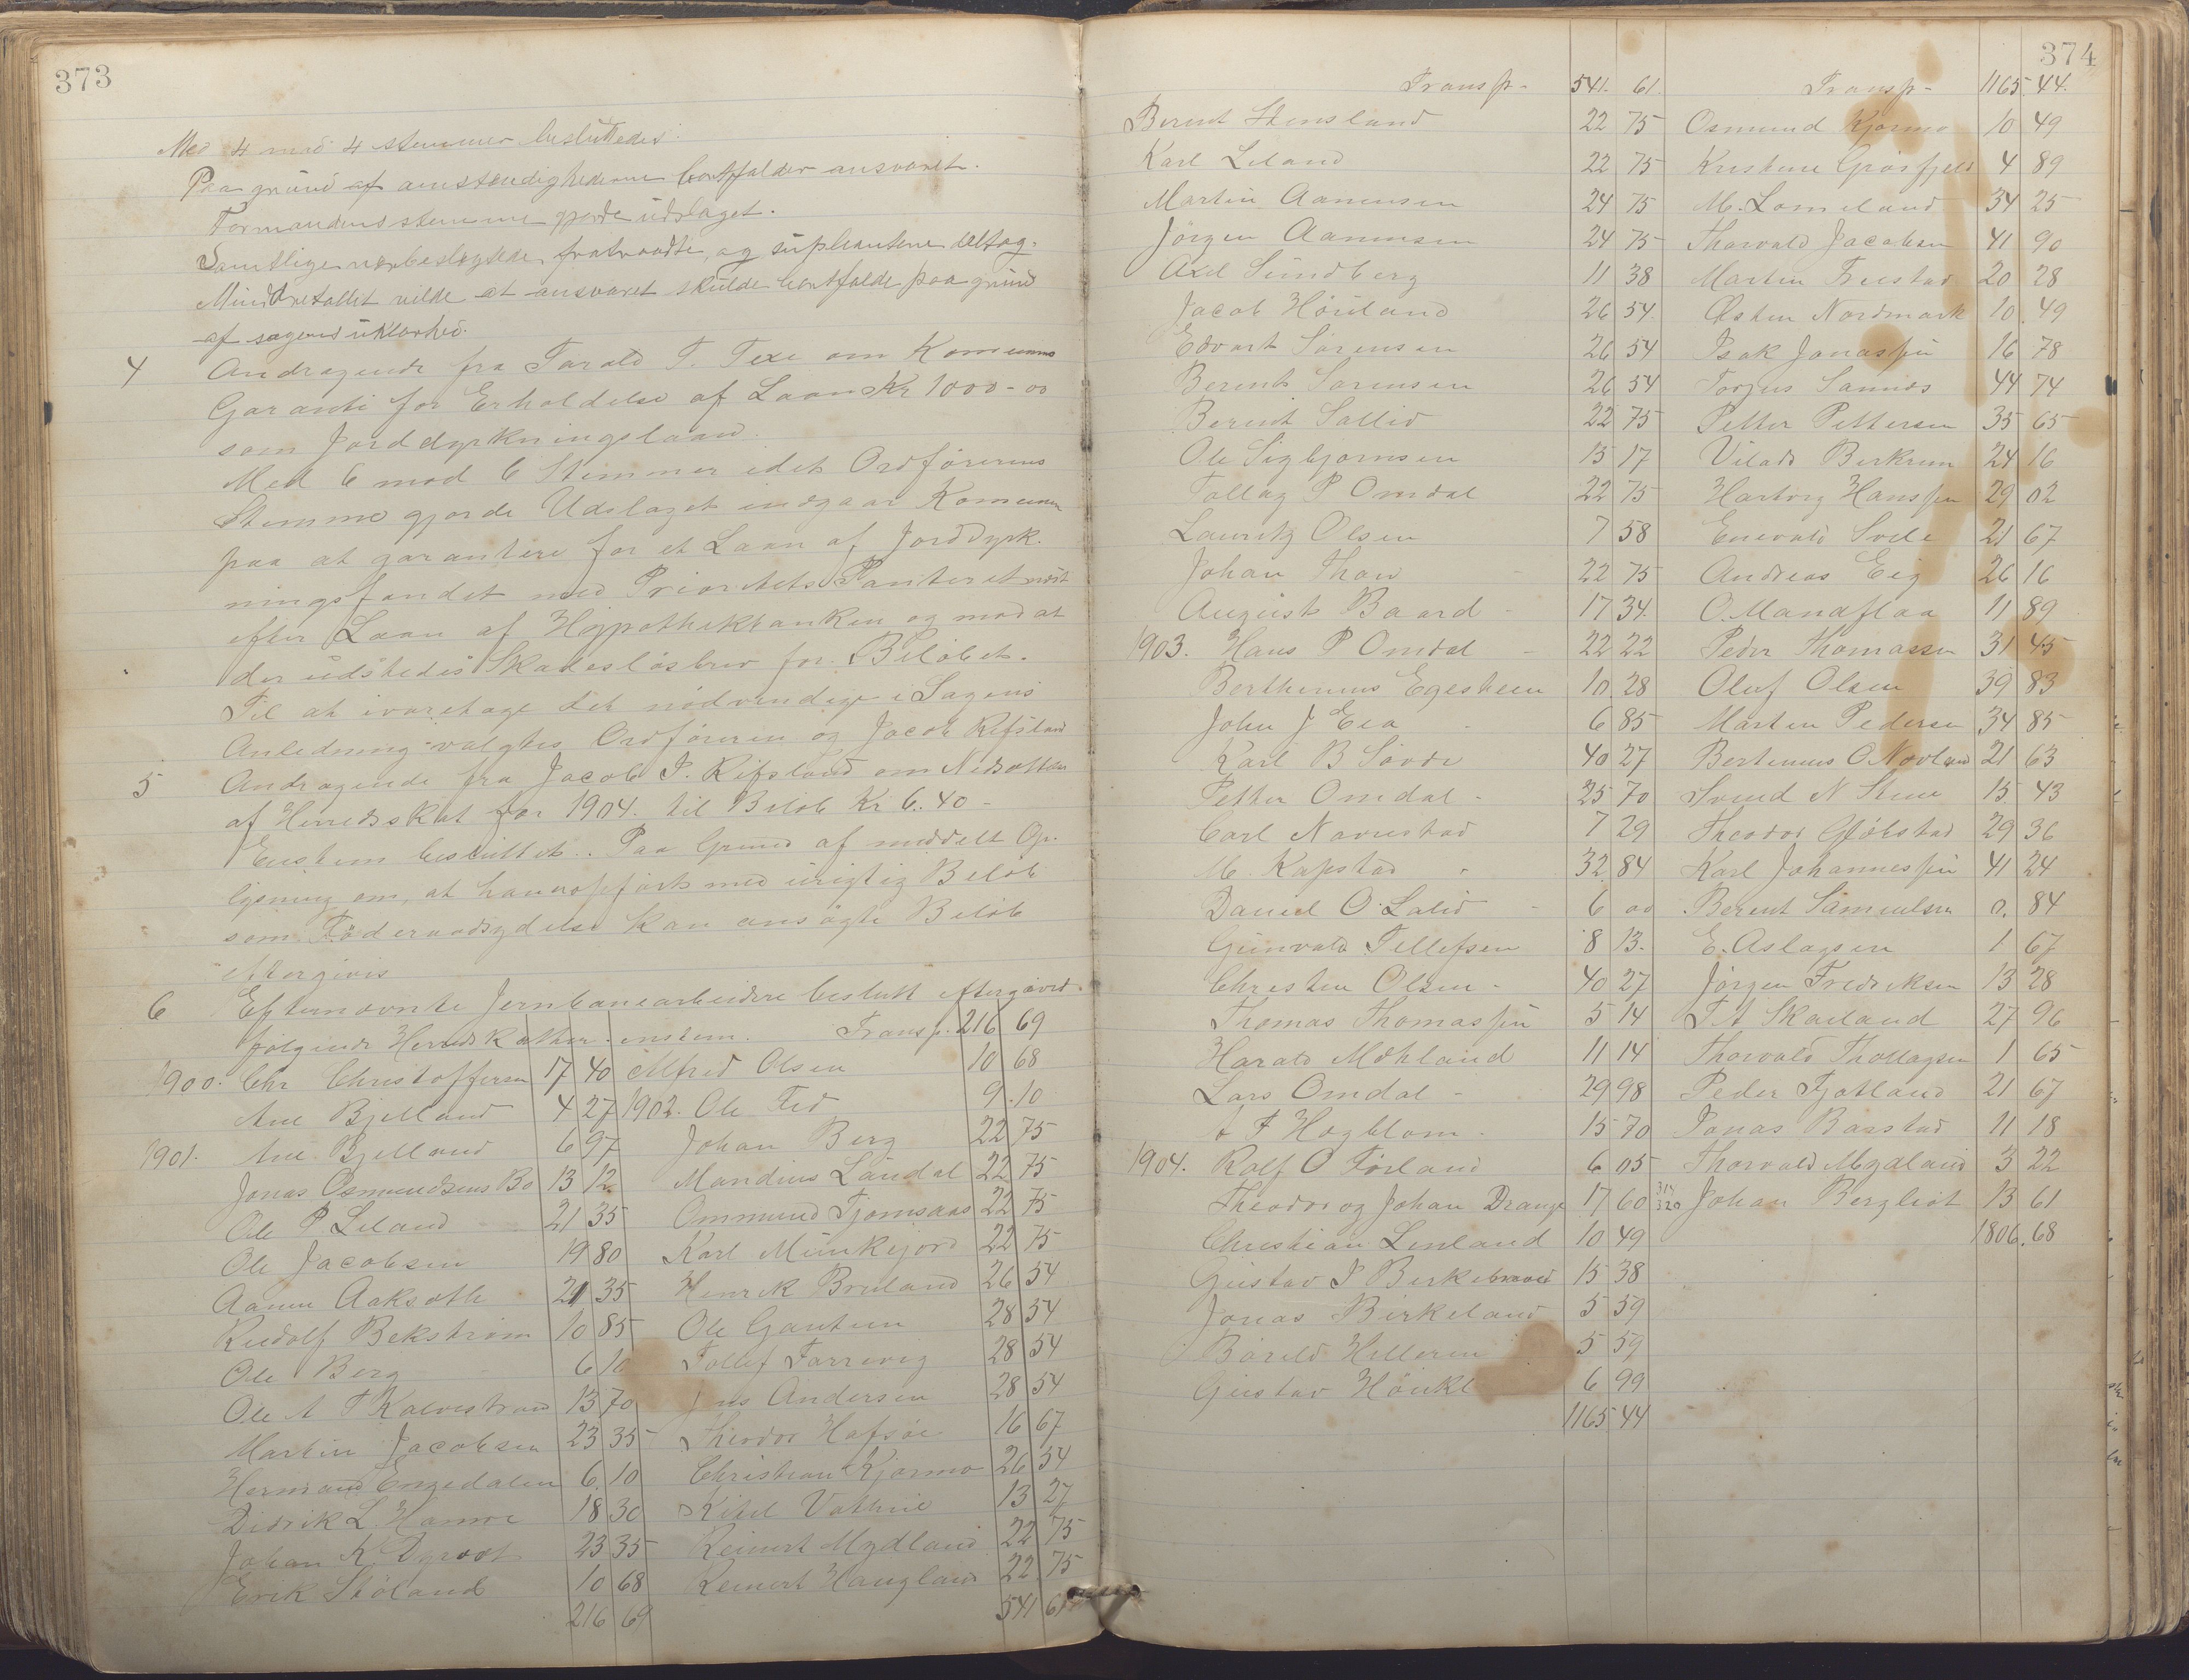 373
Med 4 mod 4 stemmer besluttedes:
Paa grund af omstendighederne bortfalder ansvaret.
Formandens stemme gjorde udslaget.
Samtlige nærbeslægtede fratraadte, og supleantene deltog.
Mindretallet vilde at ansvaret skulde bortfalde paa grund
af sagens uklarhed.
4 Andragende fra Tarald T. Texe om Komunens
Garanti for Erholdelse af Laan Kr 1000-00
som Jorddyrkningslaan.
Med 6 mod 6 Stemmer idet Ordförerens
Stemme gjorde Udslaget indgaar Komunen
paa at garantere for et Laan af Jorddyrk-
ningsfondet med Prioritets Panteret næst
efter Laan af Hypothekbanken og mod at
der udstedes Skadeslösbrev for Belöbet.
Til at ivaretage det nödvendige i Sagens
Anledning valgtes Ordföreren og Jacob Refsland
5 Andragende fra Jacob P. Refsland om Nedsættelse
af Herredsskat for 1904. til Belöb Kr 6.40-
Enstem besluttet. Paa Grund af meddelt Op-
lysning om, at han er opfört med urigtig Belöb
som Föderaadsydelse kan ansögte Belöb
eftergives
6 Efternævnte Jernbanearbeidere beslutt eftergivet
følgende Herredskatter enstem. Transp. 216 69
1900. Chr Christoffersen 17 40 Alfred Olsen 10 68
Ane Bjelland 4 27 1902. Ole Fed 9.10
1901. Ane Bjelland 6 97 Johan Berg 22 75
Jonas Osmundsens Bo 13 12 Mandius Landal 22 75
Ole P. Leland 21 35 Ommund Tjomsaas 22 75
Ole Jacobsen 19 80 Karl Munkejord 22 75
Aanen Aaksoth 21 35 Henrik Breiland 26 54
Rudolf Bekström 10 85 Ole Gautun 28 54
Ole Berg 6 10 Tollef Farrevig 28 54
Ole A T Kalvestrand 13 70 Jens Andersen 28 54
Martin Jacobsen 23 35 Theodor Hafsöe 16 67
Hermand Engedalen 6 10 Christian Kjörmo 26 54
Didrik L. Hamre 18 30 Ketel Vathne 13 27
Johan K Dyrdot 23 35 Reinert Mydland 22 75
Erik Stöland 10 68 Reinert Haugland 22 75
216 69 541 61
374
Transp- 541. 61. Transp- 1165.44.
Berent Stensland 22 75 Osmund Kjørmo 10 49
Karl Leland 22 75 Kristine Grösfjeld 4 89
Martin Aanensen 24 75 M. Lomeland 34 25
Jörgen Aanensen 24 75 Thorvald Jacobsen 41 90
Axel Sundberg 11 38 Martin Frestad 20 28
Jacob Höiland 26 54. Østen Nordmark 10.49
Edvart Sörensen 26 54 Isak Jonassen 16 78
Berent Sörensen 26 54 Torjus Sannes 44 74
Berent Sallid 22 75 Petter Pettersen 35 65
Ole Sigbjornsen 15 17 Vilads Berkrem 24 16
Tollag P Omdal 22 75 Hartvig Hanssen 29 02
Lauritz Olsen 7 58 Enevald Svile 21 67
Johan Thow 22 75 Andreas Eig 26 16
August Baard 17 34. O. Mandflaa 11 89
1903. Hans P Omdal 22 22 Peder Thomassen 31 45
Berthinius Egesheim 10 28 Oluf Olsen 39 83
John J Eea 6 85 Martin Pedersen 34 85
Karl B Sövde 40 27 Bertinius O Novland 21 63
Petter Omdal 25 70 Svend N Stene 15 43
Carl Navestad 7 29 Theodor Glöbstad 29 36
M. Kapstad 32 84 Karl Johannessen 41 24
Daniel O. Lalid 6 00 Berent Samuelsen 0. 84
Gunvald Tellefsen 8 13. E. Aslagsen 1 67
Christen Olsen 40 27 Jörgen Fredriksen 13 28
Thomas Thomassen 5 14 T A Skailand 27 96
Harald Mohland 11 14 Thorvald Thollagsen 1 65
Lars Omdal 29 98 Peder Fjotland 21 67
A F Hogblom 15 70 Jonas Barstad 11 18
1904. Rolf O Förland 6 05 Thorvald Mydland 3 22
Theodor og Johan Drange 17 60 314 320 Johan Bergliot 13 61
Christian Lenland 10 49 1806.68
Gustav P Birkebraaed 15 38
Jonas Birkeland 5 59
Bareld Helleren 5 59
Gustav 6 99
1165 44